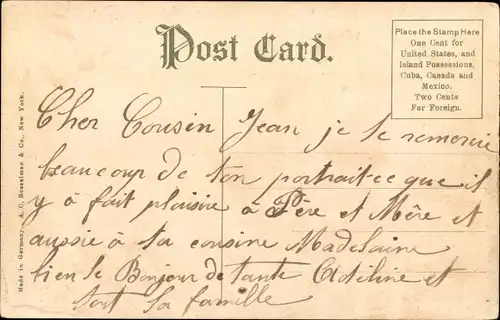 Post Card.
Place the Stamp Here
One Cent for
United States, and
Island Possessions,
Cuba, Canada and
Mexico.
Two Cents
For Foreign.
Cher Cousin Jean je te remercie
beaucoup de ton portrait ce que il
y à fait plaisire à Père et Mère et
aussie à ta cousine Madelaine
bien le Bonjour de tante Adéline et
tout sa famille
Made in Germany. A. C. Bosselman & Co., New York.